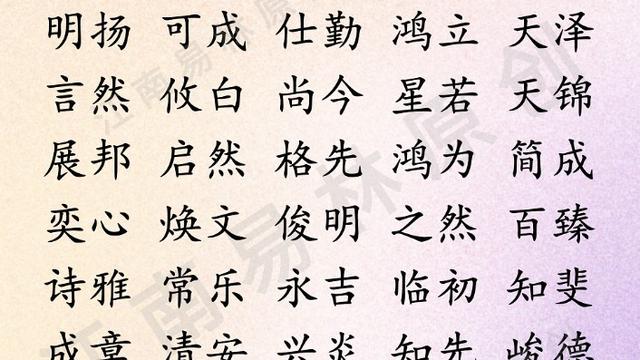 明扬 可成 仕勤 鸿立 天泽
言然 攸白 尚今 星若 天锦
展邦 启然 格先 鸿为 简成
奕心 焕文 俊明 之然 百臻
诗雅 常乐 永吉 临初 知斐
成章 清安 兴炎 知先 峻德
江南易林原创